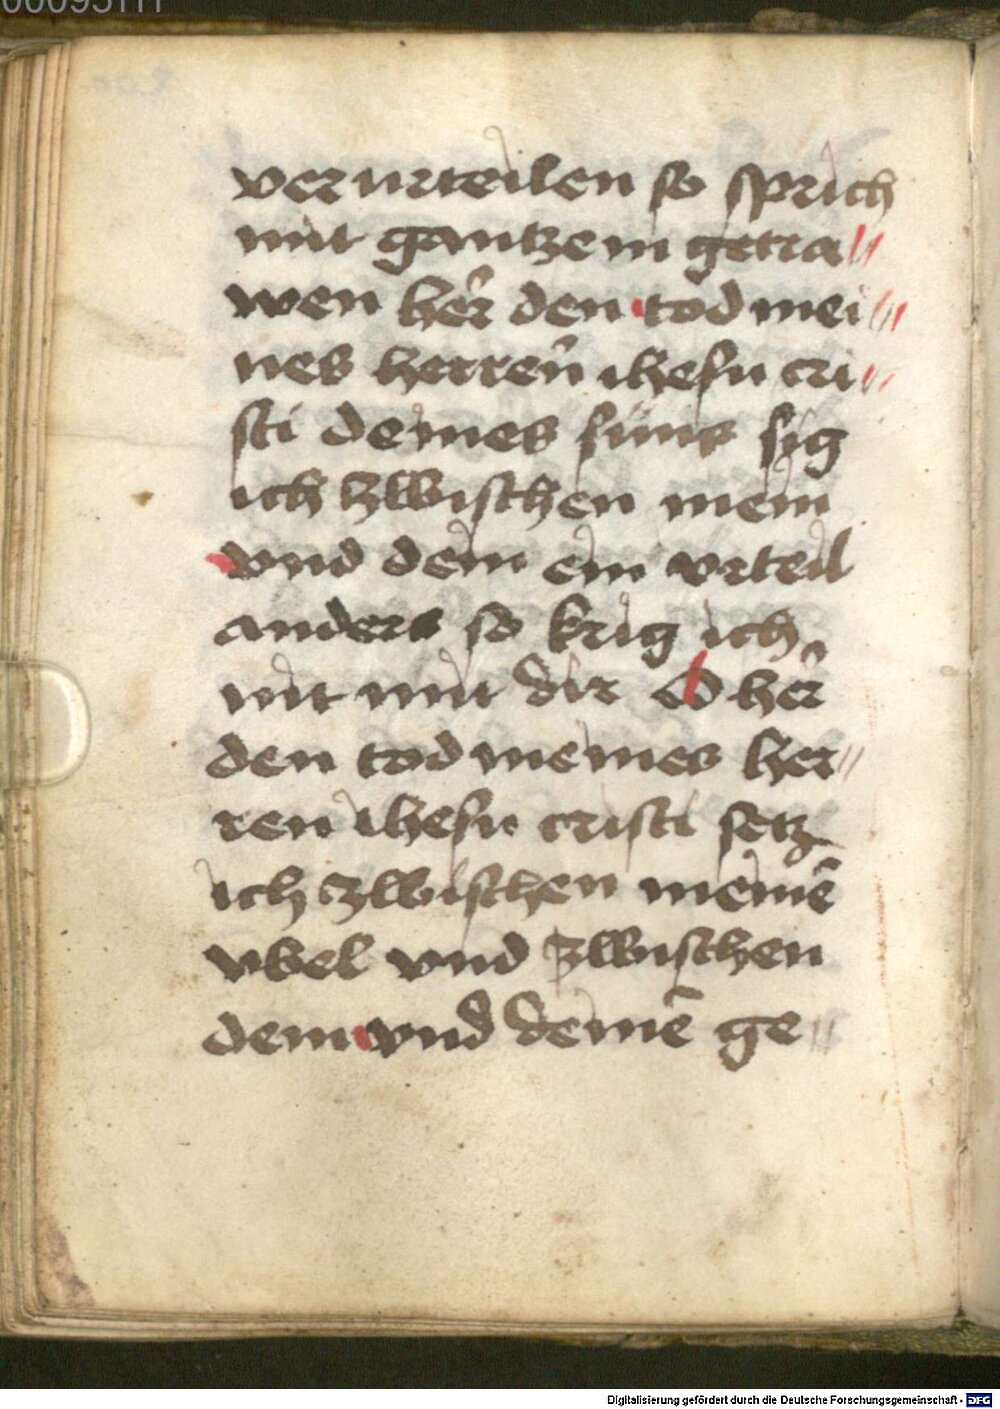 00093111
verurteilen so sprich
mit gantzem getra//
wen her̄ den tod mei//
nes herren̄ ihesu cri//
sti deines suns sig
ich zwischen mein
vnd dein ein vrteil
anders so krig ich
nit mit dir O her̄
den tod meines her//
ren ihesu cristi setz
ich zwischen meinē
vbel vnd zwischen
dein vnd deinē ge//
Digitalisierung gefördert durch die Deutsche Forschungsgemeinschaft - DFG